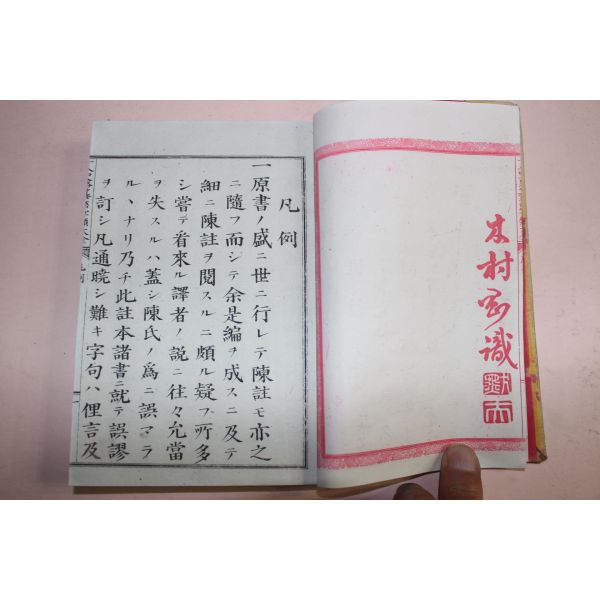 木村
識
凡例
一原書ノ盛ニ世ニ行レテ陳註モ亦之
ニ隨フ而シテ余是編ヲ成スニ及テ
細ニ陳註ヲ閲スルニ頗ル疑フ所多
シ嘗テ看來ル譯者ノ說ニ往々允當
ヲ失スルハ蓋シ陳氏ノ爲ニ誤マラ
ルヽナリ乃チ此註本諸書ニ就テ誤謬
ヲ訂シ凡通曉シ難キ字句ハ俚言及
凡例